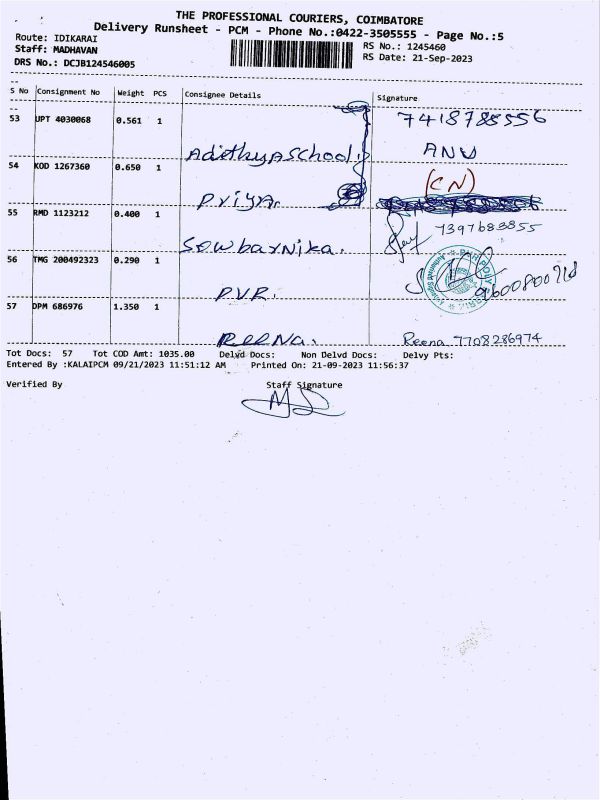 THE PROFESSIONAL COURIERS, COIMBATORE
Delivery Runsheet - PCM - Phone No.:0422-3505555 - Page No.:5
Route: IDIKARAI
RS No.: 1245460
Staff: MADHAVAN
RS Date: 21-Sep-2023
DRS No.: DCJB124546005
S No Consignment No Weight PCS Consignee Details Signature
53 UPT 4030068 0.561 1 Adithya School 7418788556
ANU
54 KOD 1267360 0.650 1 Priya. (CN)
55 RMD 1123212 0.400 1 Sowbarnika. 7397683855
56 TMG 200492323 0.290 1 PVR.
57 DPM 686976 1.350 1 REENA. Reena 7708286974
Tot Docs: 57 Tot COD Amt: 1035.00 Delvd Docs: Non Delvd Docs: Delvy Pts:
Entered By :KALAIPCM 09/21/2023 11:51:12 AM Printed On: 21-09-2023 11:56:37
Verified By Staff Signature